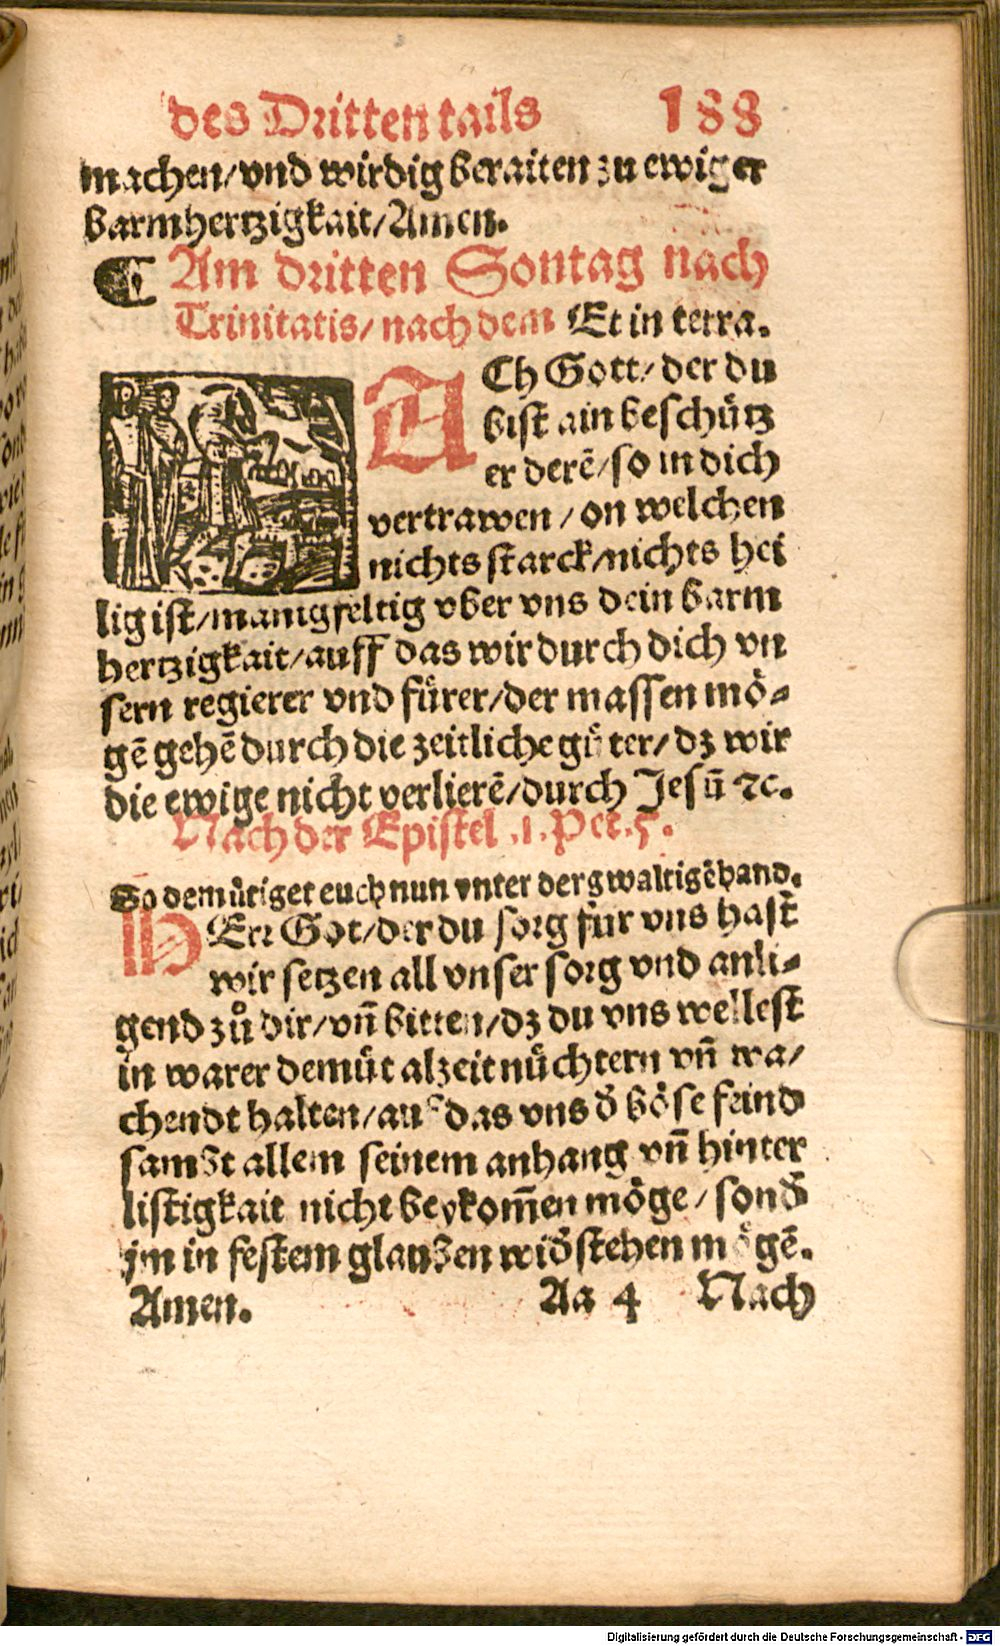 des Dritten tails 188
machen/vnd wirdig beraiten zu ewiger
barmhertzigkait/Amen.
¶ Am dritten Sontag nach
Trinitatis/nach dem Et in terra.
ACh Gott/der du
bist ain beschütz
er derē/so in dich
vertrawen/on welchen
nichts starck/nichts hei
lig ist/manigfeltig vber vns dein barm
hertzigkait/auff das wir durch dich vn
sern regierer vnd fürer/der massen mö-
gē gehē durch die zeitliche güter/dz wir
die ewige nicht verlierē/durch Jesū ꝛc.
Nach der Epistel .1. Pet. 5.
So demütiget euch nun vnter der gwaltigē hand.
HErr Got/der du sorg für vns hast
wir setzen all vnser sorg vnd anli-
gend zů dir/vñ bitten/dz du vns wellest
in warer demüt alzeit nüchtern vñ wa/
chendt halten/auf das vns d̄ böse feind
sambt allem seinem anhang vñ hinter
listigkait nicht beykom̄en möge/sond̄
jm in festem glauben wid̄stehen mögē.
Amen. Aa 4 Nach
Digitalisierung gefördert durch die Deutsche Forschungsgemeinschaft - DFG